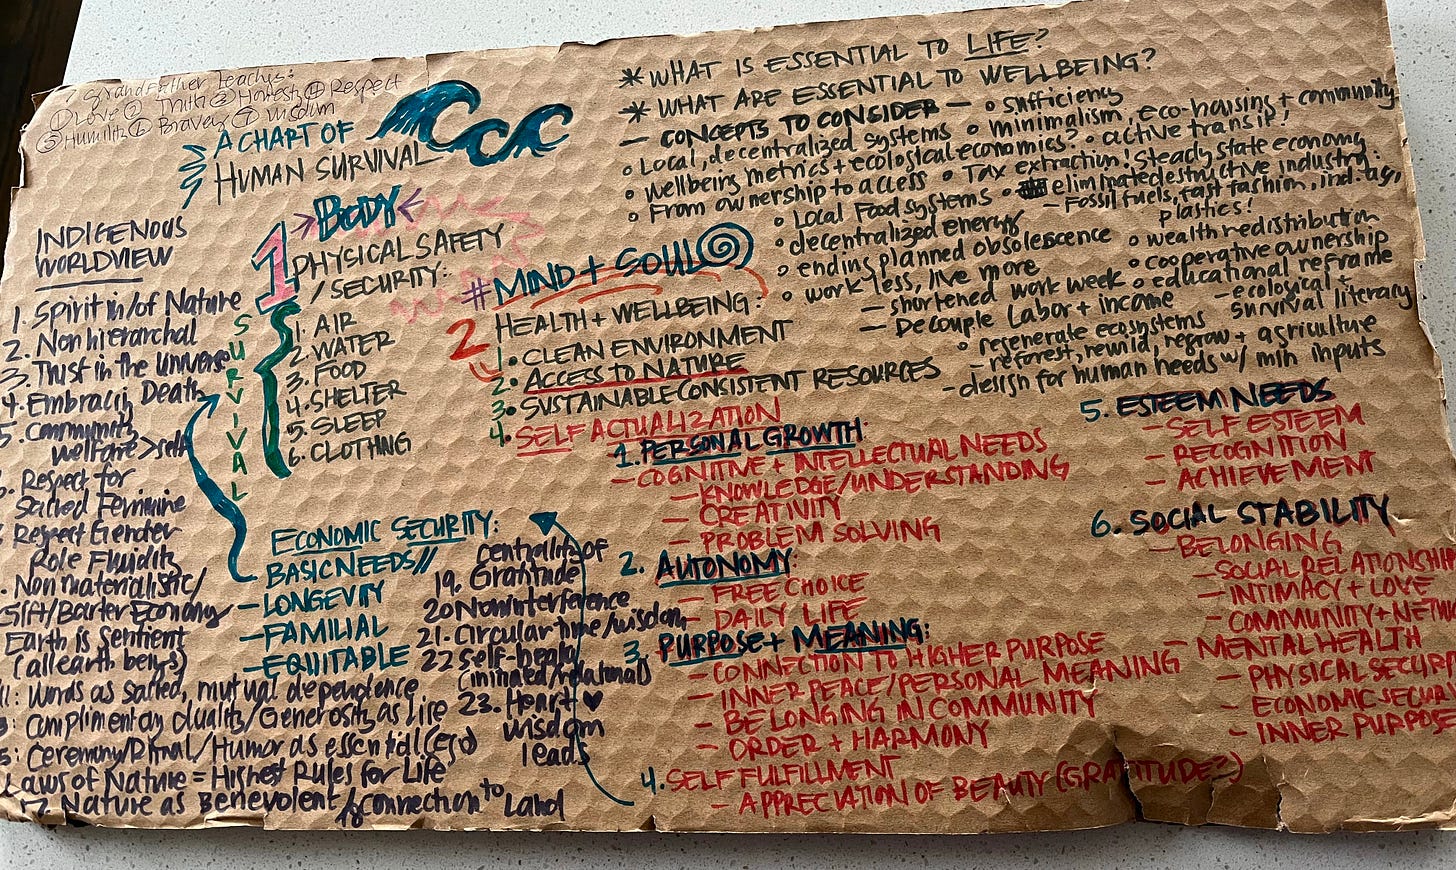 7 Grandfather Teachgs:
① Love ② Truth ③ Honesty ④ Respect
⑤ Humility ⑥ Bravery ⑦ Wisdom
A CHART OF
HUMAN SURVIVAL
INDIGENOUS
WORLDVIEW
1. Spirit in/of Nature
2. Nonhierarchal
3. Trust in the Universe
4. Embracing Death
5. Community
welfare > self
Respect for
Sacred Feminine
Respect Gender
Role Fluidity
Nonmaterialistic/
Gift/Barter Economy
Earth is Sentient
(all earth beings)
11: Words as sacred, mutual dependence
Complimentary duality/Generosity as Life
Ceremony/Ritual/Humor as essential
Laws of Nature = Highest Rules for Life
Nature as Benevolent/connection to Land
centrality of
19. Gratitude
20 Noninterference
21. Circular time/wisdom
22 Self-
23. Heart ♥
wisdom
leads
1
BODY
PHYSICAL SAFETY
/SECURITY:
SURVIVAL
1. AIR
2. WATER
3. FOOD
4. SHELTER
5. SLEEP
6. CLOTHING
ECONOMIC SECURITY:
- BASIC NEEDS//
- LONGEVITY
- FAMILIAL
- EQUITABLE
# MIND + SOUL
2
HEALTH + WELLBEING:
1. CLEAN ENVIRONMENT
2. ACCESS TO NATURE
3. SUSTAINABLE CONSISTENT RESOURCES
4. SELF ACTUALIZATION
1. PERSONAL GROWTH:
- COGNITIVE + INTELLECTUAL NEEDS
- KNOWLEDGE/UNDERSTANDING
- CREATIVITY
- PROBLEM SOLVING
2. AUTONOMY:
- FREE CHOICE
- DAILY LIFE
3. PURPOSE + MEANING:
- CONNECTION TO HIGHER PURPOSE
- INNER PEACE/PERSONAL MEANING
- BELONGING IN COMMUNITY
- ORDER + HARMONY
4. SELF FULFILLMENT
- APPRECIATION OF BEAUTY (GRATITUDE?)
5. ESTEEM NEEDS
- SELF ESTEEM
- RECOGNITION
- ACHIEVEMENT
6. SOCIAL STABILITY
- BELONGING
- SOCIAL RELATIONSHI
- INTIMACY + LOVE
- COMMUNITY + NETW
- MENTAL HEALTH
- PHYSICAL SECURI
- ECONOMIC SECUR
- INNER PURPOSE
* WHAT IS ESSENTIAL TO LIFE?
* WHAT ARE ESSENTIAL TO WELLBEING?
- CONCEPTS TO CONSIDER - o sufficiency
o Local, decentralized systems o minimalism, eco-housing + community
o wellbeing metrics + ecological economics? o active transit!
o From ownership to access o Tax extraction! Steady state economy
o Local Food systems o eliminate destructive industry:
- Fossil fuels, fast fashion, ind. ag,
plastics!
o decentralized energy
o ending planned obsolescence o wealth redistribution
o work less, live more o cooperative ownership
- shortened work week o educational reframe
- Decouple Labor + income - ecological +
survival literacy
o regenerate ecosystems
- reforest, rewild, regrow + agriculture
- design for human needs w/ min inputs